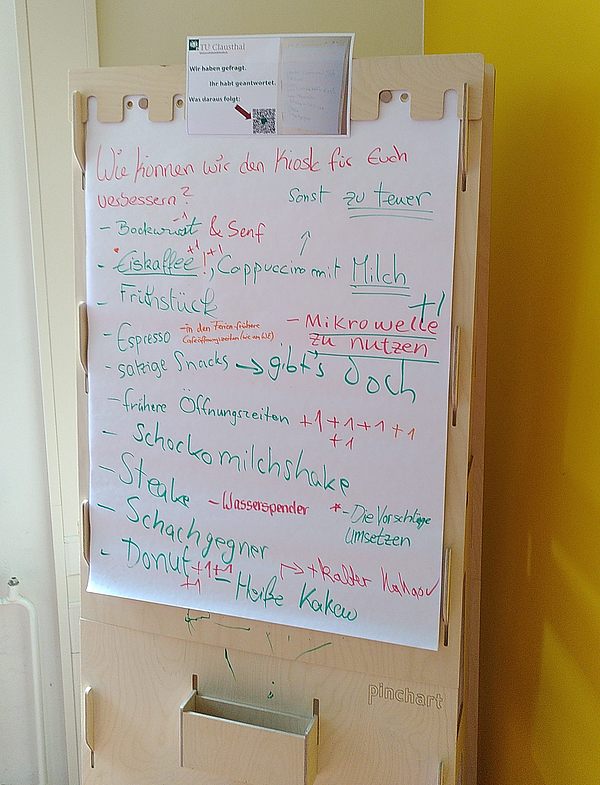 TU Clausthal
Wir haben gefragt.
Ihr habt geantwortet.
Was daraus folgt:
Wie können wir den Kiosk für Euch
verbessern?
sonst zu teuer
- Bockwurst -1 & Senf
- Eiskaffee +1 ! +1, Cappuccino mit Milch
- Frühstück
+1
- Espresso - in den Ferien frühere
Caféöffnungszeiten (wie am WE)
- Mikrowelle
zu nutzen
- salzige Snacks → gibt's doch
- frühere Öffnungszeiten +1 +1 +1 +1
+1
- Schockomilchshake
- Steake
- Wasserspender
* - Die Vorschläge
Umsetzen
- Schachgegner
- Donut +1 +1
+1
- Heiße Kakao
→ + kalter Kakao
pinchart